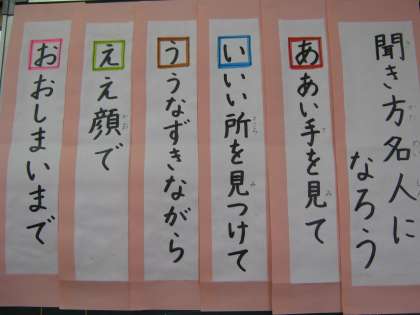 聞き方名人に
なろう
ああい手を見て
いいい所を見つけて
ううなずきながら
ええ顔で
おおしまいまで